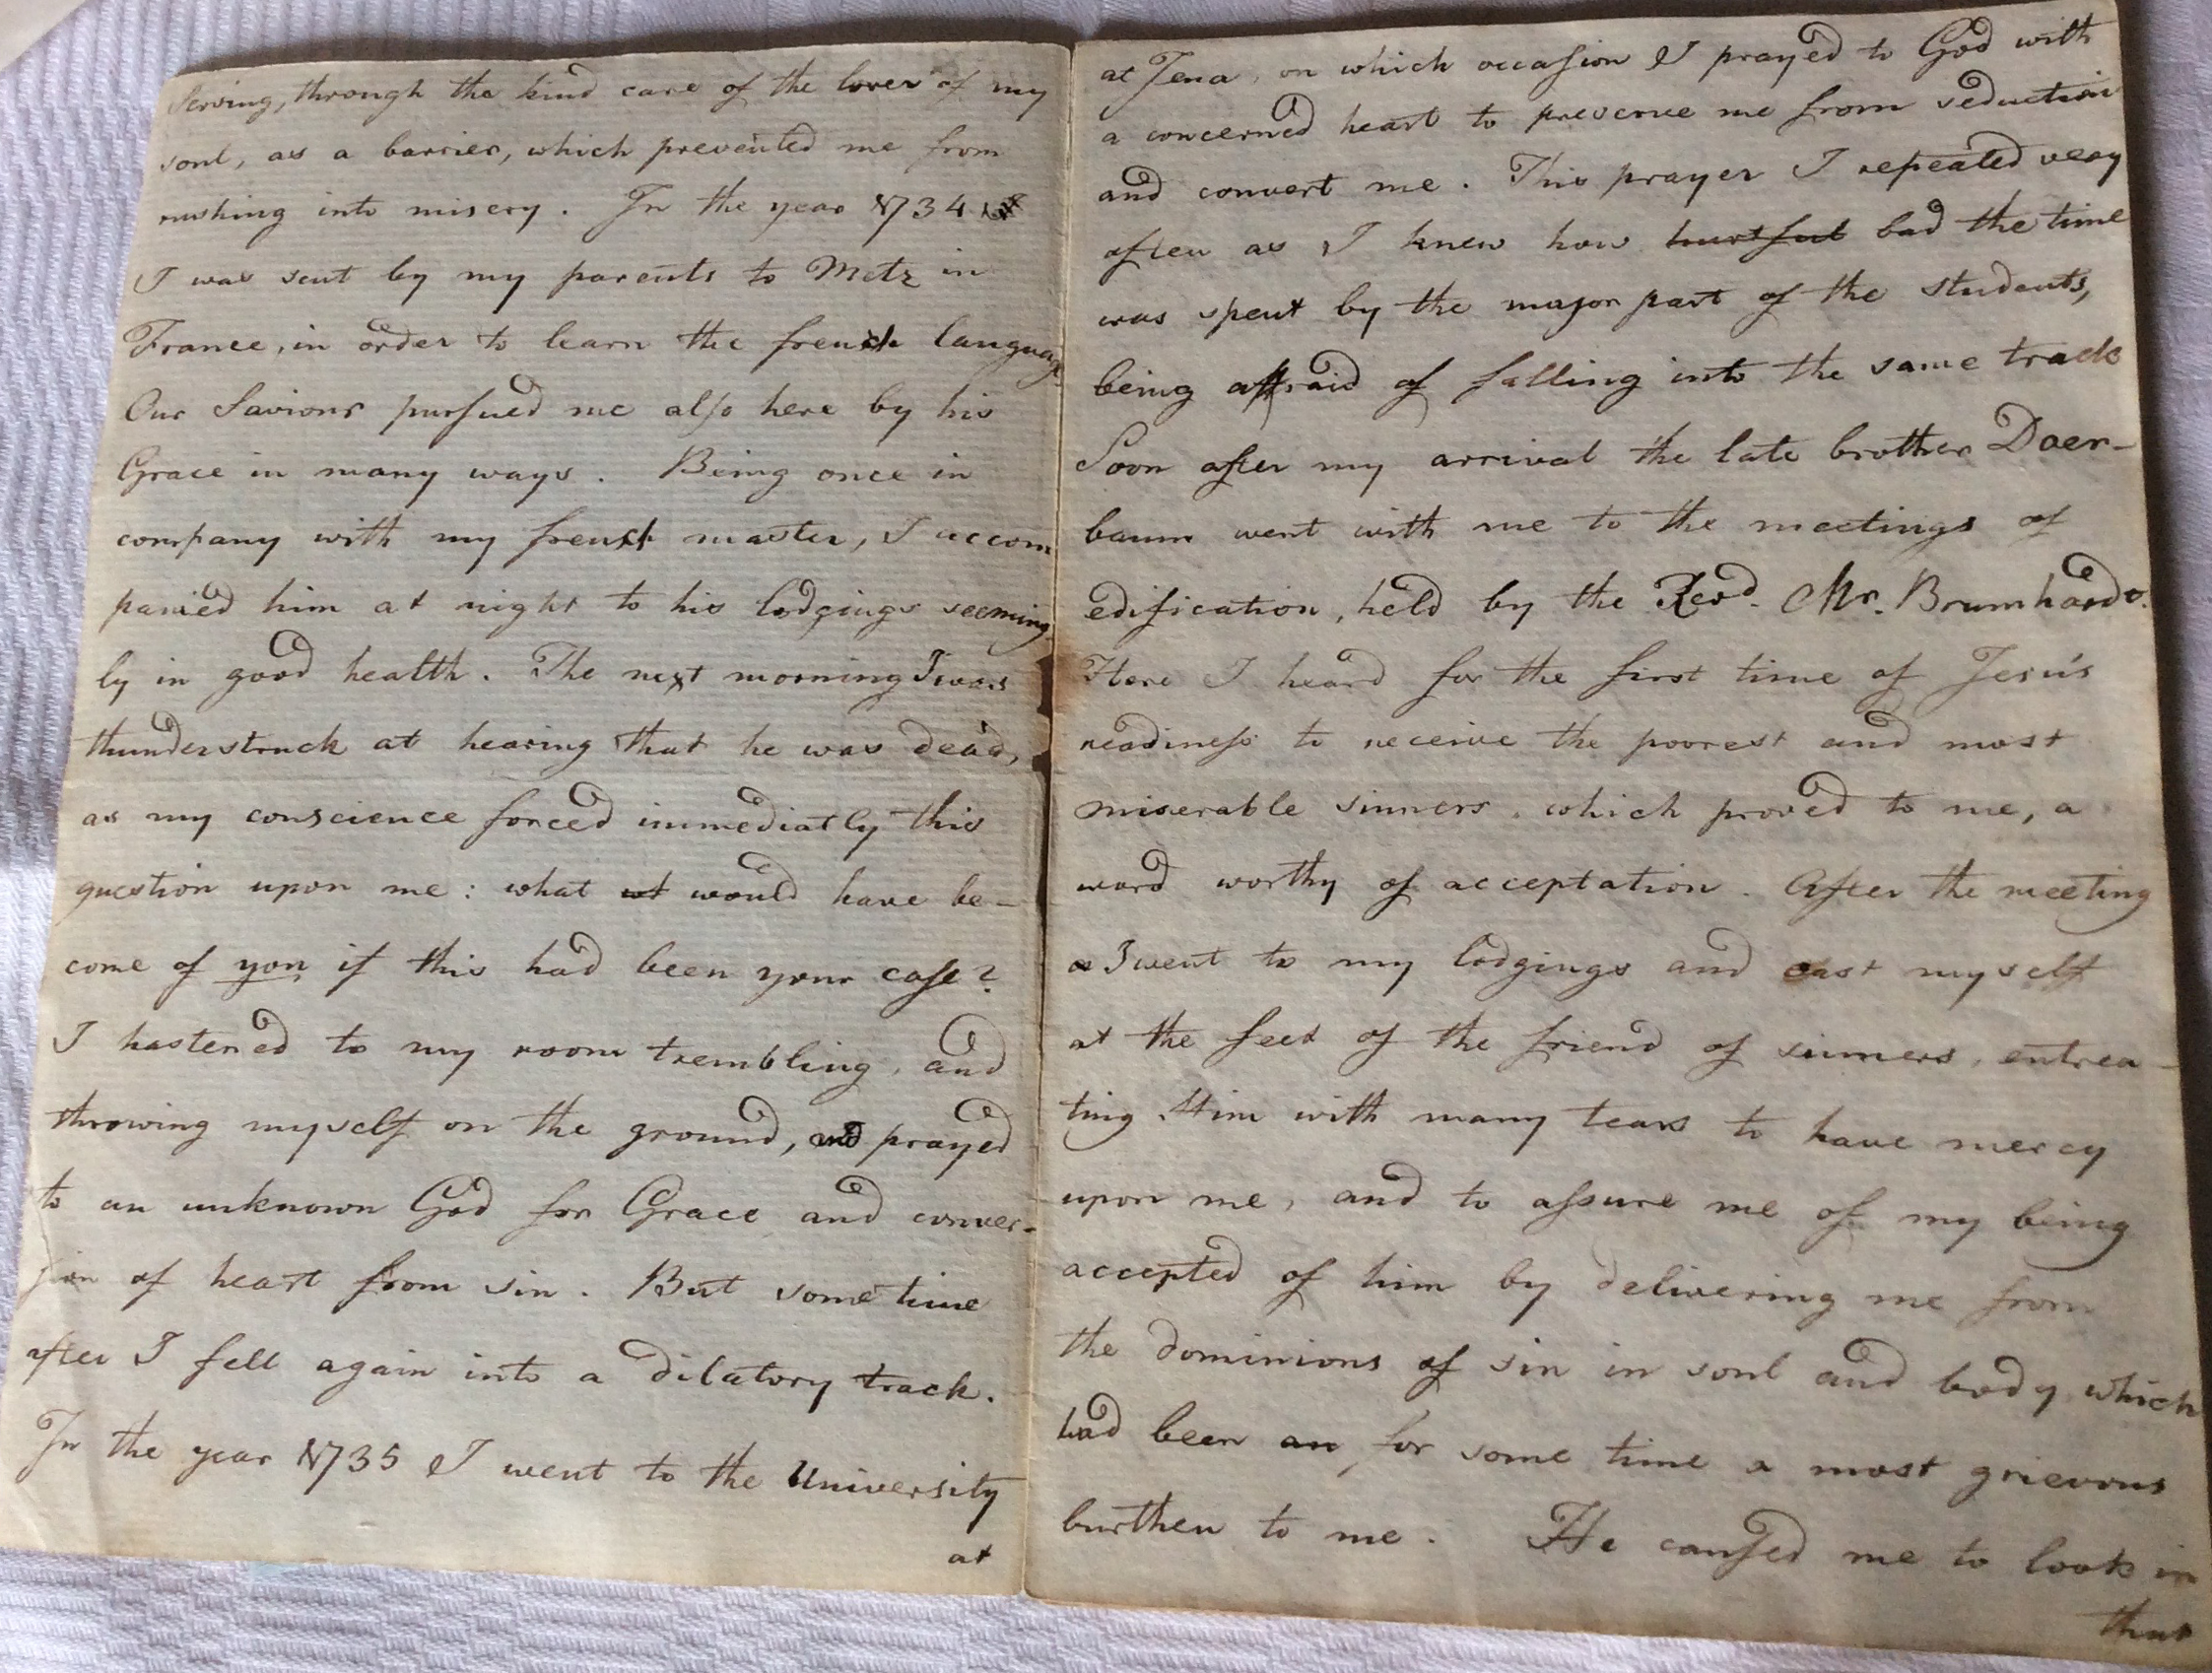 Serving, through the kind care of the lover of my
soul, as a barrier, which prevented me from
rushing into misery. In the year 1734
I was sent by my parents to Metz in
France, in order to learn the french language
Our Saviour pursued me also here by his
Grace in many ways. Being once in
company with my french master, I accom
panied him at night to his lodgings seeming
ly in good health. The next morning I was
thunderstruck at hearing that he was dead,
as my conscience forced immediatly this
question upon me: what wt would have be-
come of you if this had been your case?
I hastened to my room trembling, and
throwing myself on the ground, and prayed
to an unknown God for Grace and conver-
sion of heart from sin. But some time
after I fell again into a dilatory track.
In the year 1735 I went to the University
at
at Jena, on which occasion I prayed to God with
a concerned heart to preserve me from seduction
and convert me. This prayer I repeated very
often as I knew how hurtful bad the time
was spent by the major part of the students,
being affraid of falling into the same track
Soon after my arrival the late brother Doer-
baum went with me to the meetings of
edification, held by the Revd. Mr. Brumhard.
Here I heard for the first time of Jesu's
readiness to receive the poorest and most
miserable sinners, which proved to me, a
word worthy of acceptation. After the meeting
I went to my lodgings and cast myself
at the feet of the friend of sinners, entrea-
ting Him with many tears to have mercy
upon me, and to assure me of my being
accepted of him by delivering me from
the dominions of sin in soul and body which
had been an for some time a most grievous
burthen to me. He caused me to look in
that